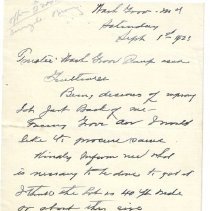 Wash Grove - Md
Saturday
Sept 1st 1923
Trustees Wash Grove Camp
Gentlemen
Being desirous of
lot Just Back of me
Facing Grove Ave I would
like to procure same
Kindly Inform me What
is necessary to be done to get it
I think the lot is 40 ft wide
or about this size